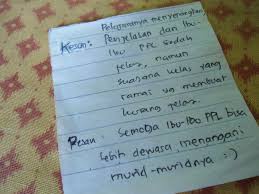 Pelajarannya menyenangkan
Kesan: Penjelasan dan Ibu-
Ibu PPL sudah
jelas, namun
suasana kelas yang
ramai yg membuat
kurang jelas.
Pesan: Semoga Ibu-Ibu PPL bisa
lebih dewasa menangani
murid-muridnya :)